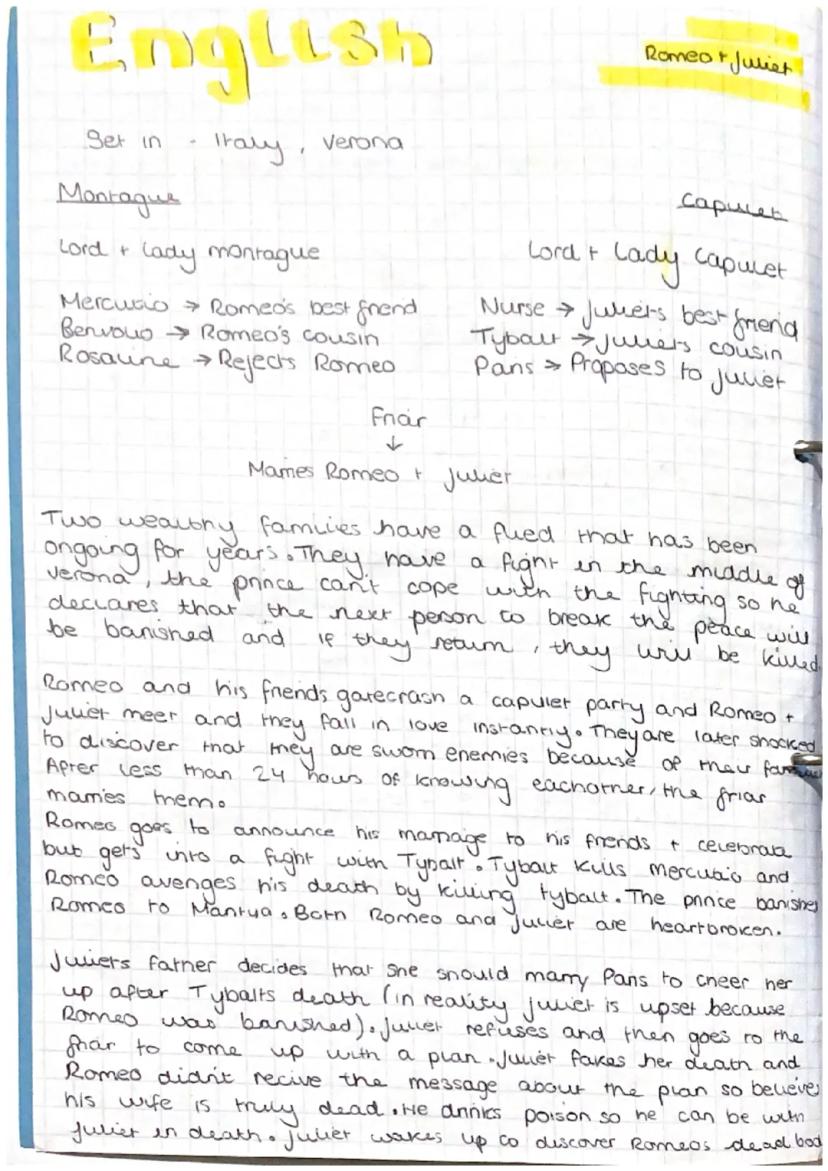 English
Romeo + Juliet
Set in - Italy, Verona
Montague
Capulet
Lord + Lady montague
Lord + Lady Capulet
Mercutio → Romeo's best friend
Nurse → Juliet's best friend
Benvolio → Romeo's cousin
Tybalt → Juliet's cousin
Rosaline → Rejects Romeo
Paris → Proposes to Juliet
Friar
↓
Marries Romeo + Juliet
Two wealthy families have a fued that has been
ongoing for years. They have a fight in the middle of
Verona, the prince can't cope with the fighting so he
declares that the next person to break the peace will
be banished and if they return, they will be killed.
Romeo and his friends gatecrash a capulet party and Romeo +
Juliet meet and they fall in love instantly. They are later shocked
to discover that they are sworn enemies because of their
After less than 24 hours of knowing eachother, the friar
marries them.
Romeo goes to announce his marriage to his friends + celebrate
but gets into a fight with Tybalt. Tybalt kills mercutio and
Romeo avenges his death by killing tybalt. The prince banishes
Romeo to Mantua. Both Romeo and Juliet are heartbroken.
Juliets father decides that she should marry Paris to cheer her
up after Tybalts death (in reality Juliet is upset because
Romeo was banished). Juliet refuses and then goes to the
friar to come up with a plan. Juliet fakes her death and
Romeo didn't recive the message about the plan so believes
his wife is truly dead. He drinks poison so he can be with
Juliet in death. Juliet wakes up to discover Romeos dead bod